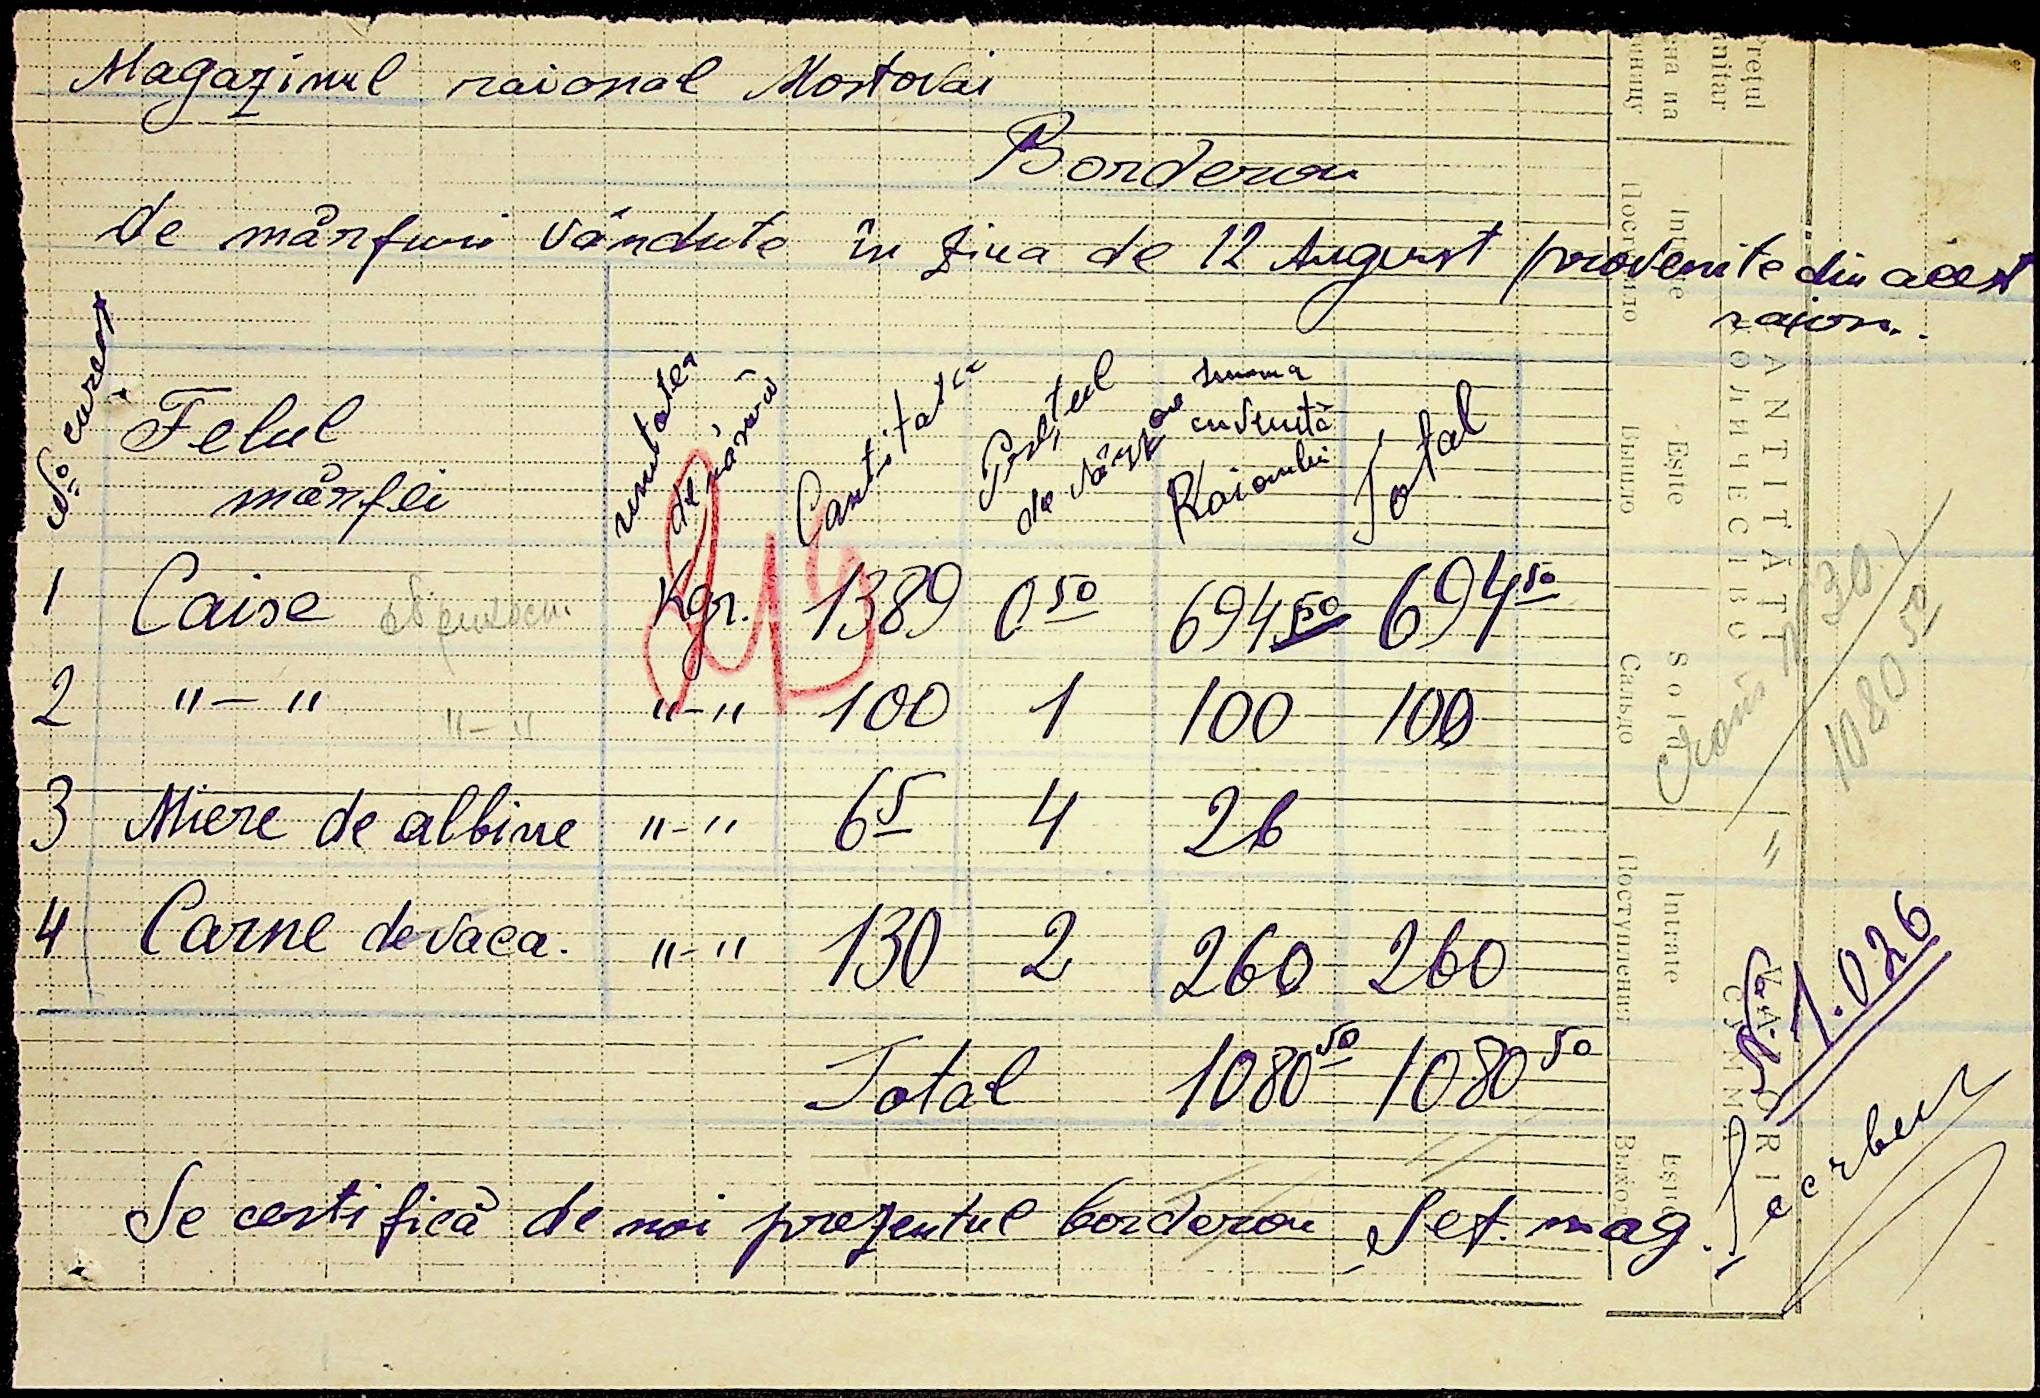 Magazinul raional Mostovai
Borderou
de mărfuri vândute în ziua de 12 August provenite din acest
raion.
No curent
Felul
mărfei
unitatea
de măsură
Cantitatea
Prețul
de vânzare
suma
cuvenită
Raionului
Total
1 Caise Kgr. 1389 0 50 694 50 694 50
2 "-" "-" "-" 100 1 100 100
3 Miere de albine "-" 6 5 4 26
4 Carne de vaca. "-" 130 2 260 260
Total 1080 50 1080 50
Se certifică de noi prezentul borderou Șef. mag.
No 1.026
30
1080 50
Prețul
unitar
Цена на
единицу
CANTITĂȚI
КОЛИЧЕСТВО
Intrate
Поступило
Eșite
Вышло
Sold
Сальдо
VALORI
СУММА
Intrate
Поступления
Eșite
Выхо